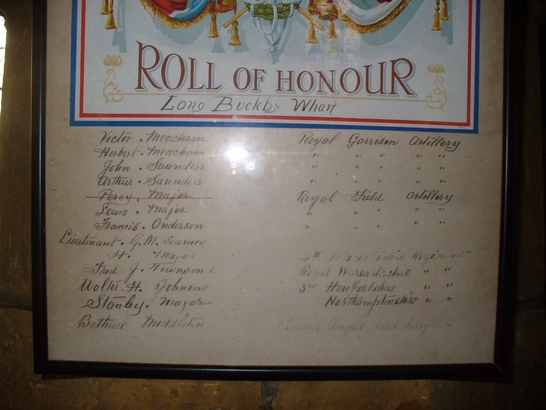 ROLL OF HONOUR
Long Buckby Wharf
Victor. Meacham Royal Garrison Artillery
Herbert. Meacham " " "
John. Saunders " " "
Arthur. Saunders " " "
Percy. Major Royal Field Artillery
Lewis. Major " " "
Francis. Anderson " " "
Lieutenant. G. M.
H. Major Regiment
Fred J. Townsend Royal Warwickshire " "
Walter. H. Johnson 3rd Herefordshire " "
Stanley. Major Northamptonshire " "
Middleton